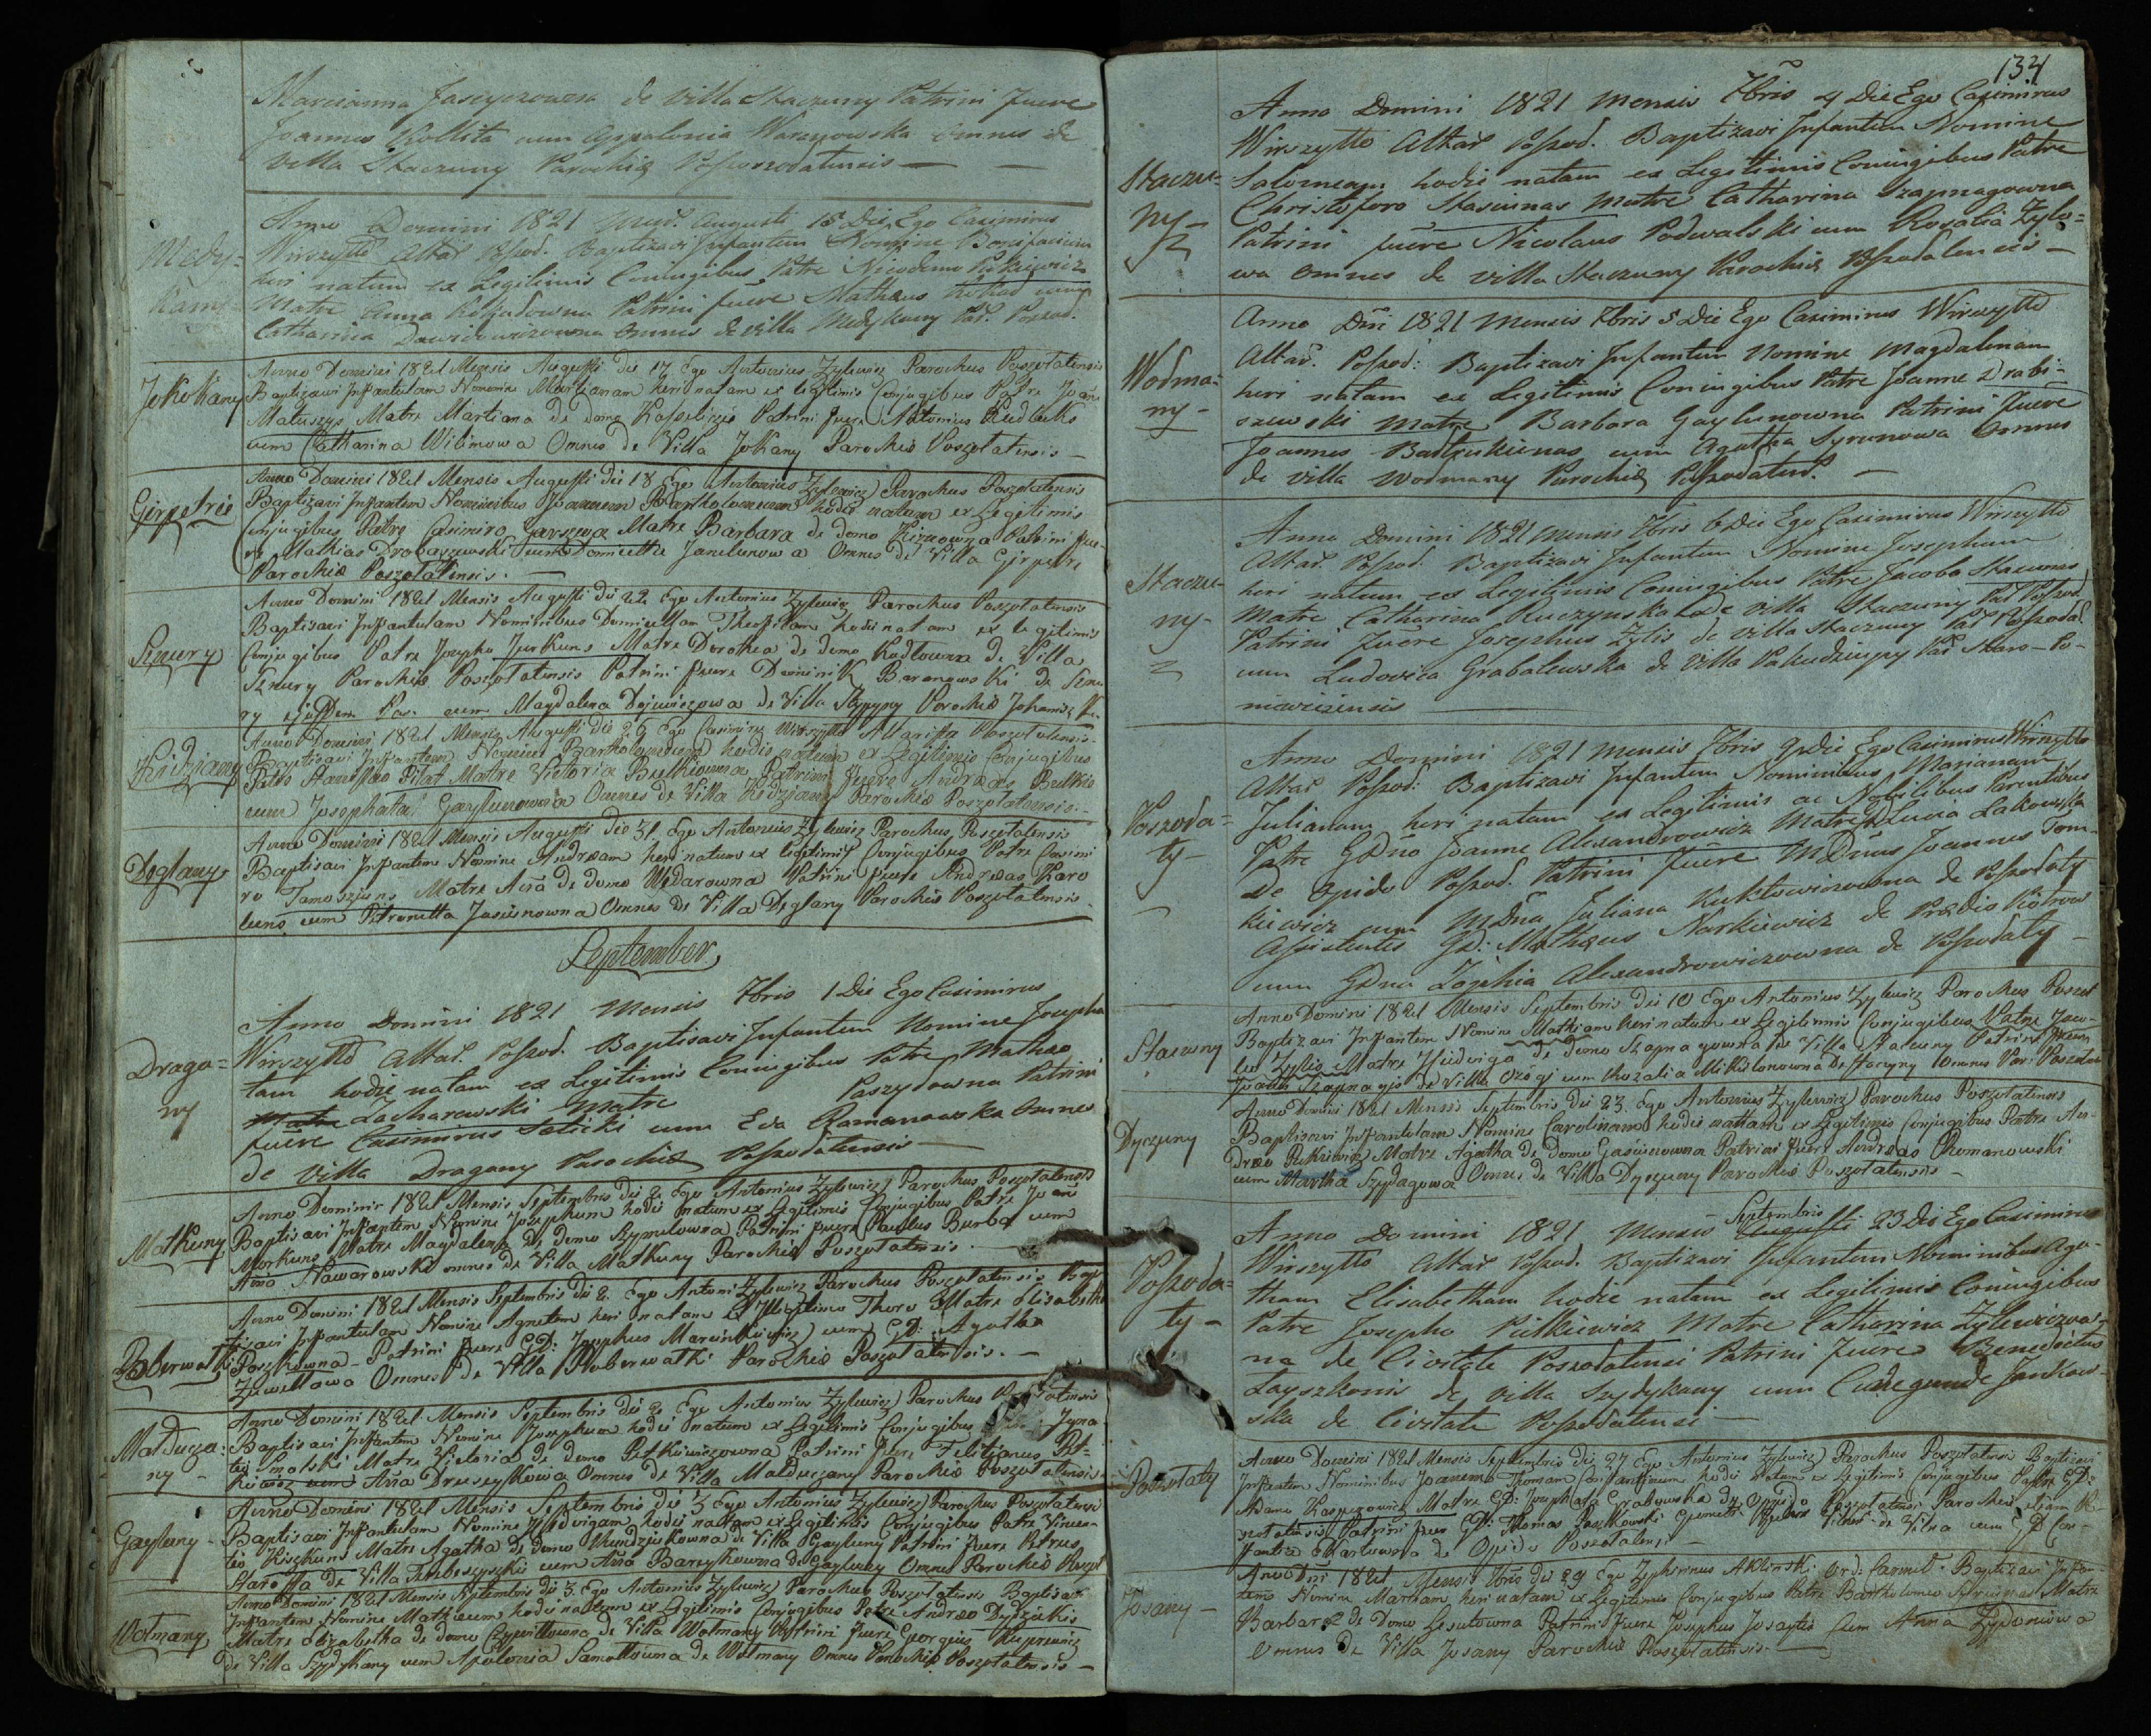 Marcianna Jascyczowna de Villa Staczuny Patrini fuere
Joannes Rollita cum Appalonia Warnowska Omnes de
Villa Staczuny Parochiæ Possodatensis
Medy-
kany
Anno Domini 1821 Augusti 15 Die Ego Casimirus
Wirszytto Altar. Possod. Baptizavi Infantem Nomine Bonifacium
heri natum ex Legitimis Coniugibus Patre Nicodemo Pitkiewicz
Matre Anna Patrini fuere Mathæus cum
Catharina Dawidowiczowna Omnes de villa Medykany Par. Possod.
Jokokany
Anno Domini 1821 Mensis Augusti die 17 Ego Antonius Zylewicz Parochus Poszolatensis
Baptizavi Infantulam Nomine Martianam heri natam ex legitimis Conjugibus Patre Joañe
Matuszys Matre Martiana de domo Patrini fuere Antonius
cum Catharina Wilimowa Omnes de Villa Jokany Parochiæ Poszolatensis
Girpetrie
Anno Domini 1821 Mensis Augusti die 18 Ego Antonius Zylewicz Parochus Poszolatensis
Baptizavi Infantem Nominibus Joannem Bartholomeum hodie natum ex Legitimis
Conjugibus Patre Casimiro Jarszewa Matre Barbara de domo Patrini fue-
re Mathias Drobaszewski cum Domicella Janelunowa Omnes de Villa Girpetrie
Parochiæ Poszolatensis.
Sznury
Anno Domini 1821 Mensis Augusti die 22 Ego Antonius Zylewicz Parochus Poszolatensis
Baptizavi Infantulam Nominibus Domicellam Theofilam hodie natam ex legitimis
Conjugibus Patre Josepho Jurkuns Matre Dorothea de domo Kodlowna de Villa
Sznury Parochiæ Poszolatensis Patrini fuere Dominik Baranowski de Sznu-
ry ejusdem Par. cum Magdalena Dojwiczowa de Villa Parochiæ
Kidziany
Anno Domini 1821 Mensis Augusti die 26 Ego Casimirus Wirszytto Altarista Poszolatensis
Baptizavi Infantem Nomine Bartholomeum hodie natum ex Legitimis Conjugibus
Patre Stanislao Pilat Matre Victoria Butkiewna Patrini fuere Andreas Butkis
cum Josephata Gaylunowna Omnes de Villa Kidziany Parochiæ Poszolatensis
Deglany
Anno Domini 1821 Mensis Augusti die 31 Ego Antonius Zylewicz Parochus Poszolatensis
Baptizavi Infantem Nomine Andream heri natum ex legitimis Conjugibus Patre Casimi
ro Tamoszuns Matre Añã de domo Wedarowna Patrini fuere Andreas Karo
luns cum Petronella Jasiunowna Omnes de Villa Deglany Parochiæ Poszolatensis
September
Draga-
ny
Anno Domini 1821 Mensis 7bris 1 Die Ego Casimirus
Wirszytto Altar. Possod. Baptisavi Infantem Nomine Josepha
tam hodie natam ex Legitimis Coniugibus Patre Mathæo
Zacharewski Matre Paszydowna Patrini
fuere Casimirus Salicki cum Eva Romanowska Omnes
de Villa Dragany Parochiæ Possodatensis
Matkuny
Anno Domini 1821 Mensis Septembris die 2 Ego Antonius Zylewicz Parochus Poszolatensis
Baptisavi Infantem Nomine Josephum hodie natum ex Legitimis Conjugibus Patre Joañe
Morkuns Matre Magdalena de domo Szymulowna Patrini fuere Paulus Burba cum
Añã Nawarowska omnes de Villa Matkuny Parochiæ Poszolatensis.
Poberwalki
Anno Domini 1821 Mensis Septembris die 2 Ego Antoni Zylewicz Parochus Poszolatensis Bap-
tisavi Infantulam Nomine Agnetem heri natam ex Illegitimo Thoro Matre Elisabetha
Poszkowna Patrini fuere GD: Josephus Marcinkiewicz cum GD: Agatha
Omnes de Villa Poberwalki Parochiæ Poszolatensis.
Malducza-
ny
Anno Domini 1821 Mensis Septembris die 2 Ego Antonius Zylewicz Parochus
Baptisavi Infantem Nomine Josephum hodie natum ex Legitimis Conjugibus Igna-
tio Smolski Matre Victoria de domo Pitkiewiczowna Patrini fuere Felitianus Pit-
kiewicz cum Añã Druseykowa Omnes de Villa Malduczany Parochiæ Poszolatensis
Gayluny
Anno Domini 1821 Mensis Septembris die 3 Ego Antonius Zylewicz Parochus Poszolatensis
Baptisavi Infantulam Nomine Hedvigam hodie natam ex Legitimis Conjugibus Patre Vincen-
tio Kiszkuns Matre Agatha de domo de Villa Gayluny Patrini fuere Petrus
Starosta de Villa cum Añã Barcykowna de Gayluny Omnes Parochiæ Poszol
Wolmany
Anno Domini 1821 Mensis Septembris die 3 Ego Antonius Zylewicz Parochus Poszolatensis Baptisavi
Infantem Nomine Mathæum hodie natum ex Legitimis Conjugibus Patre Andreo Dydziulis
Matre Elizabetha de domo de Villa Wolmany Patrini fuere Georgius Kuprewicz
de Villa Szydykany cum Apolonia Samollowna de Wolmany Omnes Parochiæ Poszolatensis
134
Staczu-
ny
Anno Domini 1821 Mensis 7bris 4 Die Ego Casimirus
Wirszytto Altar Possod. Baptizavi Infantem Nomine
Salomeam hodie natam ex Legitimis Coniugibus Patre
Christoforo Stasiunas Matre Catharina Szapnagowna
Patrini fuere Nicolaus Podwalski cum Rosalia Zylo-
wa Omnes de Villa Staczuny Parochiæ Possodatensis
Wodma-
ny
Anno Dñi 1821 Mensis 7bris 5 Die Ego Casimirus Wirszytto
Altar. Possod: Baptizavi Infantem Nomine Magdalenam
heri natam ex Legitimis Coniugibus Patre Joanne Drabi-
szewski Matre Barbara Gaylunowna Patrini fuere
Joannes cum Agatha Syrunowa Omnes
de villa Wodmany Parochiæ Possodatens.
Staczu-
ny
Anno Domini 1821 Mensis 7bris 6 Die Ego Casimirus Wirszytto
Altar. Possod. Baptizavi Infantem Nomine Josephum
heri natum ex Legitimis Coniugibus Patre Jacobo Staciunis
Matre Catharina Ruczynska de villa Staczuny Par Possod
Patrini fuere Josephus Zylis de villa Staczuny Par Possodat.
cum Ludovica Grabalewska de Villa Pakudzupy Par Nowo-Po-
niewizensis
Poszoda-
ty
Anno Domini 1821 Mensis 7bris 9 die Ego Casimirus Wirszytto
Altar Possod: Baptizavi Infantem Nominibus Mariannam
Julianam heri natam ex Legitimis ac Nobilibus Parentibus
Patre GDno Joanne Alexandrowicz Matre Lucia Lakowska
de Opido Possod. Patrini fuere MDnus Joannes Tom-
kiewicz cum MDna Juliana Kuklowiczowna de Possodaty
Assistentes GD: Mathæus Narkiewicz de Prædio
cum GDna Zophia Alexandrowiczowna de Possodaty
Staczuny
Anno Domini 1821 Mensis Septembris die 10 Ego Antonius Zylewicz Parochus Poszol
Baptizavi Infantem Nomine Mathiam heri natum ex Legitimis Conjugibus Patre Jaco-
bo Zylis Matre Hedviga de domo Szapnagowna de Villa Staczuny Patrini fuere
Szapnagis de Villa Ożogi cum Rozalia Mikulonowna de Staczyny Omnes Par. Poszolat
Dyczuny
Anno Domini 1821 Mensis Septembris die 23 Ego Antonius Zylewicz Parochus Poszolatensis
Baptisavi Infantulam Nomine Carolinam hodie natam ex Legitimis Conjugibus Patre An-
dreo Pitkiewicz Matre Agatha de domo Gasiunowna Patrini fuere Andreas Romanowski
cum Martha Szydagowa Omnes de Villa Dyczuny Parochiæ Poszolatensis
Possoda-
ty
Anno Domini 1821 Mensis Septembris Augusti 23 Die Ego Casimirus
Wirszytto Altar Possod. Baptizavi Infantem Nominibus Aga-
tham Elisabetham hodie natam ex Legitimis Coniugibus
Patre Josepho Pitkiewicz Matre Catharina Zylewiczow-
na de Civitate Poszodatensi Patrini fuere Benedictus
Layszkonis de villa Szydykany cum Cunegunde Jankow-
ska de Civitate Possodatensi
Poszolaty
Anno Domini 1821 Mensis Septembris die 27 Ego Antonius Zylewicz Parochus Poszolatensis Baptizavi
Infantem Nominibus Joannem Thomam Constantinum hodie natum ex Legitimis Conjugibus Patre GD:
Adamo Kasperowicz Matre GD: Josephata Grabowska de Oppido Poszolatensi Parochiæ ejusdem Po-
szolatensis Patrini fuere GD: Thomas Paszkowski de Vilna cum GD Con-
stantia de Opido Poszolatensi
Josany
Anno Dñi 1821 Mensis 7bris die 29 Ego Zephirinus Aklinski Ord: Carmel. Baptizavi Infan-
tem Nomine Martham heri natam ex Legitimis Conjugibus Patre Bartholomeo Matre
Barbara de Domo Lesutowna Patrini fuere Josephus Josaytis cum Anna Zydoniowa
Omnes de Villa Josany Parochiæ Poszolatensis